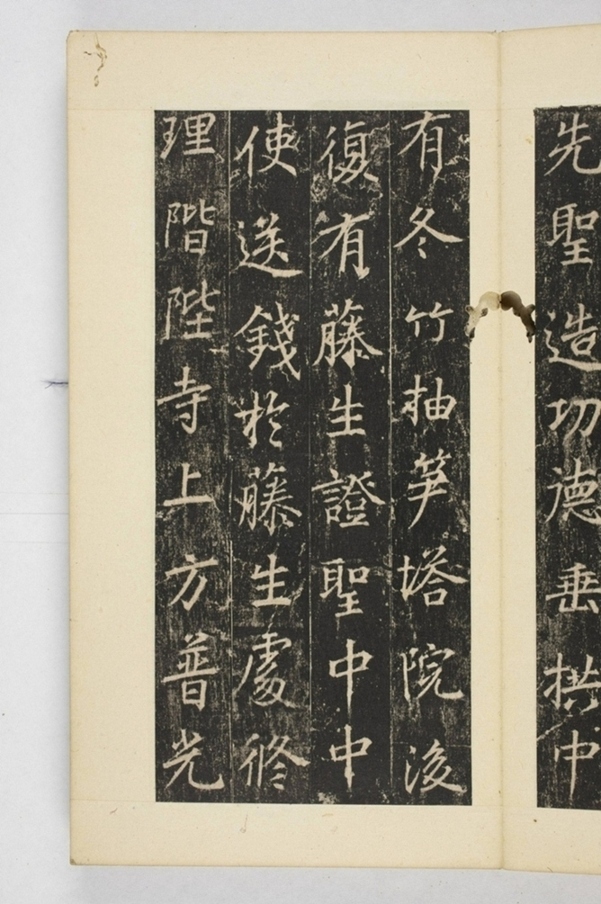 先聖造功德垂拱中
有冬竹抽笋塔院後
復有藤生證聖中中
使送錢於藤生處修
理階陛寺上方普光